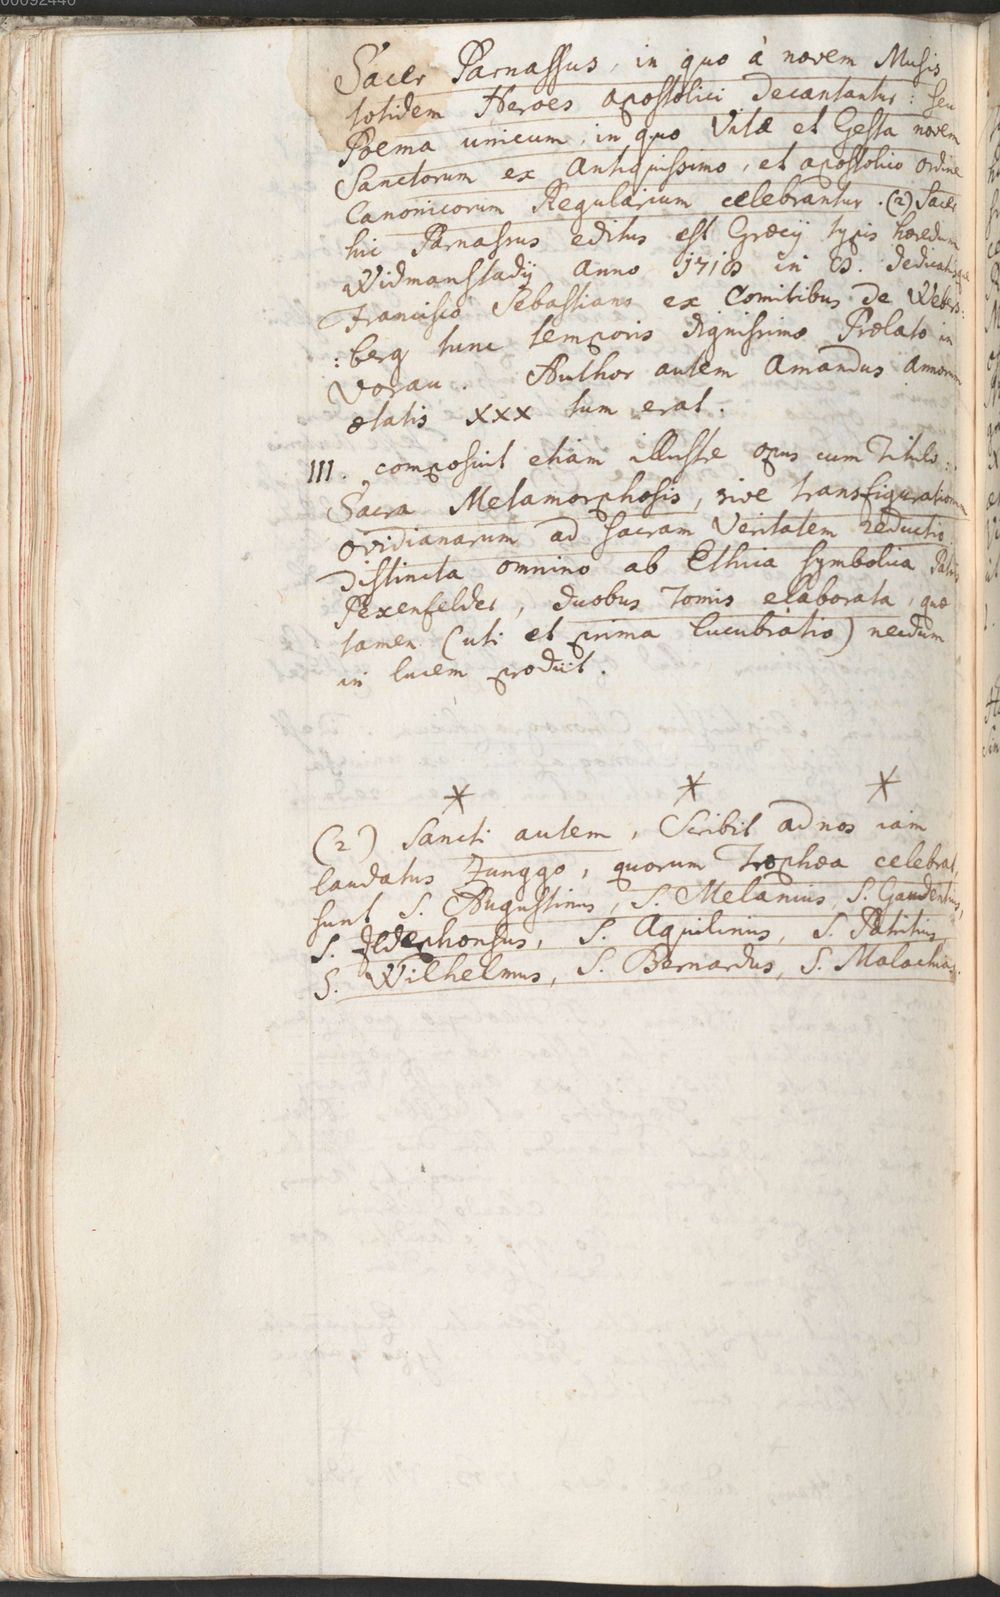 00092440
Sacer Parnassus, in quo à novem Musis
totidem Heroes apostolici decantantur: seu
Poema unicum, in quo Vitæ et Gesta novem
Sanctorum ex Antiquissimo, et apostolico ordine
Canonicorum Regularium celebrantur. (2) Sacer
hic Parnassus editus est Græcij typis hæredum
Widmanstadij Anno 1718 in 8. dedicatusque
Francisco Sebastiano ex Comitibus de Webers:
:berg tunc temporis dignissimo Prælato in
Vorau. Author autem Amandus Annorum
ætatis XXX tum erat.
III. composuit etiam illustre opus cum Titulo:
Sacra Metamorphosis, sive transfigurationum
ovidianarum ad sacram Veritatem reductio
Distincta omnino ab Ethica symbolica Patris
Pexenfelder, duobus Tomis elaborata, quæ
tamen (uti et prima lucubratio) necdum
in lucem prodiit.
(2) Sancti autem, Scribit ad nos iam
laudatus Zunggo, quorum Trophæa celebrat,
sunt S. Augustinus, S. Melanius, S. Gaudentius,
S. Ildephonsus, S. Aquilinus, S. Patritius
S. Wilhelmus, S. Bernardus, S. Malachias.